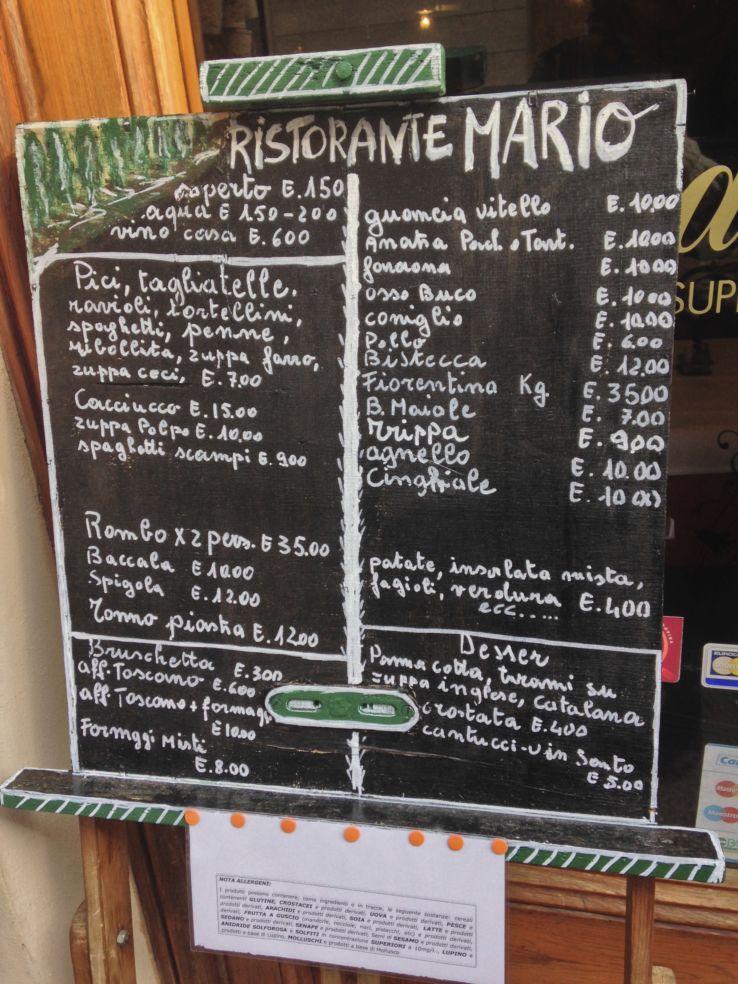 RISTORANTE MARIO
coperto E. 150
aqua E 150-200
vino casa E. 600
Pici, tagliatelle.
ravioli, tortellini,
spaghetti, penne,
ribollita, zuppa farro,
zuppa ceci, E. 7.00
Cacciucco E. 15.00
zuppa Polpo E. 10.00
spaghetti scampi E. 900
Rombo X 2 pers. E 35.00
Baccala E 10.00
Spigola E. 12.00
Tonno piastra E. 1200
Bruschetta E. 300
aff. Toscano E. 600
aff. Toscano + formagg
E 10.00
Formggi Misti
E. 8.00
guancia vitello E. 10.00
Anatra Porch. o Tart. E. 10.00
faraona E. 10.00
osso Buco E. 10.00
coniglio E. 10.00
Pollo E. 6.00
Bistecca E. 12.00
Fiorentina Kg. E. 3500
B. Maiale E. 7.00
Trippa E. 9,00
agnello E. 10.00
Cinghiale E. 10.00
patate, insalata mista,
fagioli, verdura E. 400
ecc.....
Desser
Panna cotta, tirami su
zuppa inglese, catalana
crostata E. 400
cantucci-vin Santo
E 5.00
NOTA ALLERGENI:
I prodotti possono contenere, come ingredienti o in tracce, le seguente sostanze: cereali
contenenti GLUTINE, CROSTACEI e prodotti derivati, UOVA e prodotti derivati, PESCE e
prodotti derivati, ARACHIDI e prodotti derivati, SOIA e prodotti derivati, LATTE e prodotti
derivati, FRUTTA A GUSCIO (mandorle, nocciole, noci, pistacchi, etc) e prodotti derivati,
SEDANO e prodotti derivati, SENAPE e prodotti derivati, Semi di SESAMO e prodotti derivati,
ANIDRIDE SOLFOROSA e SOLFITI in concentrazione SUPERIORI a 10mg/l., LUPINO e
prodotti a base di Lupino, MOLLUSCHI e prodotti a base di Mollusco
a
SUP
EUROC